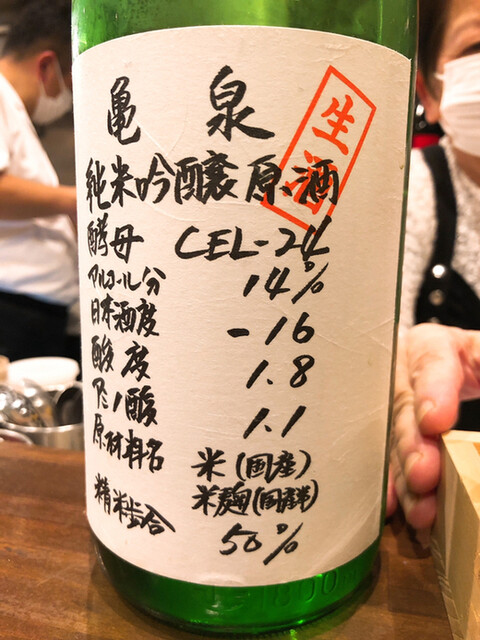 亀泉
生酒
純米吟醸原酒
酵母 CEL-24
アルコール分 14%
日本酒度 -16
酸度 1.8
アミノ酸 1.1
原材料名 米(国産)
米麹(国産米)
精米歩合 50%
1800m